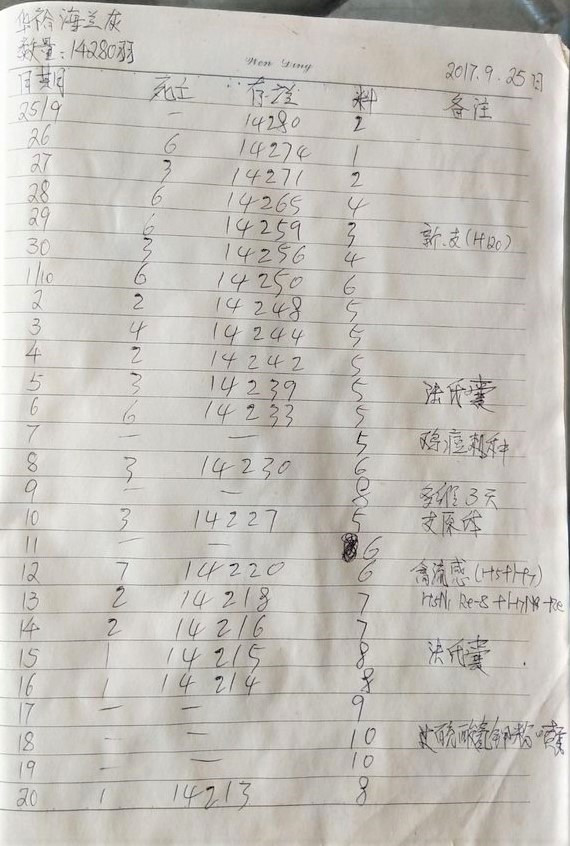 华裕海兰灰
数量:14280羽
Wen Ding
2017.9.25日
日期 死亡 存差 料 备注
25/9 — 14280 2
26 6 14274 1
27 3 14271 2
28 6 14265 4
29 6 14259 3 新.支(H120)
30 3 14256 4
1/10 6 14250 6
2 2 14248 5
3 4 14244 5
4 2 14242 5
5 3 14239 5 法氏囊
6 6 14233 5
7 — — 5 鸡痘刺种
8 3 14230 6
9 — — 8 3天
10 3 14227 5 支原体
11 — — 6
12 7 14220 6 禽流感(H5+H7)
13 2 14218 7 H5N1 Re-8+H7N9-Re
14 2 14216 7
15 1 14215 8 法氏囊.
16 1 14214 8
17 — — 9
18 — — 10
19 — — 10
20 1 14213 8